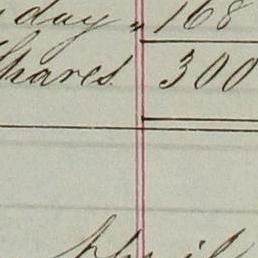 day " 168
Shares 300
April